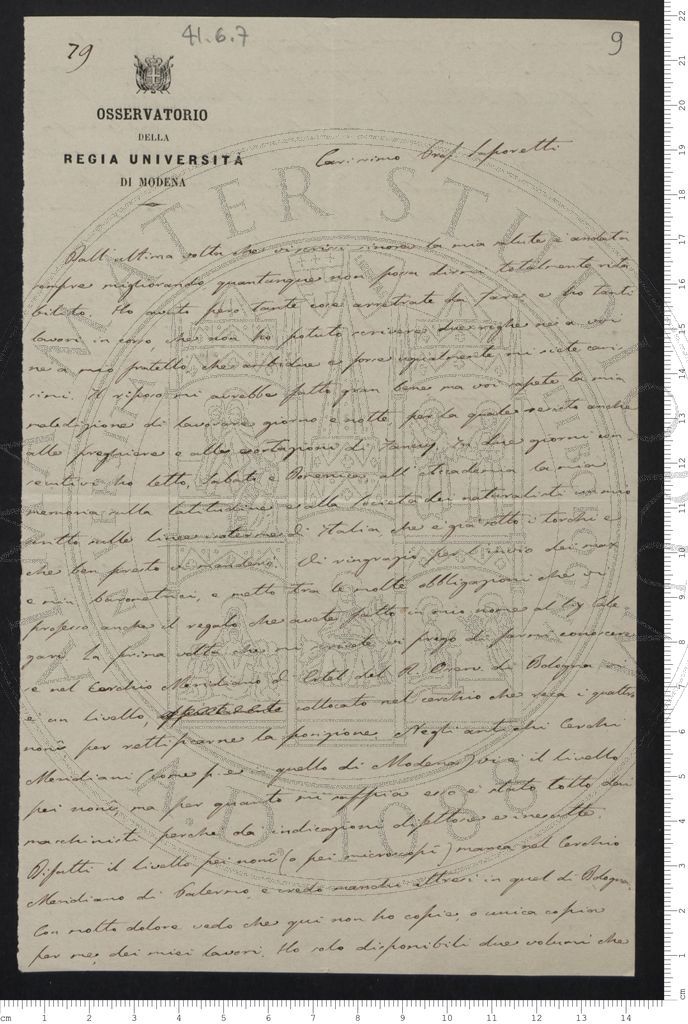 41.6.7
79
9
OSSERVATORIO
DELLA
REGIA UNIVERSITÀ
DI MODENA
Carissimo Prof. Saporetti
Dall'ultima volta che vi scrissi sinora la mia salute è andata
sempre migliorando quantunque non possa dirmi totalmente rista
bilito. Ho avuto però tante cose arretrate da fare e ho tanti
lavori in corso che non ho potuto scrivere due righe nè a voi
nè a mio fratello, che ambidue e forse ugualmente mi siete caris
simi. Il riposo mi avrebbe fatto gran bene ma voi sapete la mia
maledizione di lavorare giorno e notte per la quale resisto anche
alle preghiere e alle esortazioni di Fanny. In due giorni con-
secutivi ho letto, Sabato e Domenica, all'Accademia la mia
memoria sulla latitudine e alla Società dei naturalisti un mio
scritto sulle linee isoterme d'Italia che è già sotto i torchi e
che ben presto vi manderò. Vi ringrazio per l'invio dei mass
e min barometrici, e metto tra le molte obbligazioni che vi
professo anche il regalo che avete fatto in mio nome al Sig Cale-
gari. La prima volta che mi scrivete vi prego di farmi conoscere
se nel Cerchio Meridiano di Ertel del R. Osserv. di Bologna vi
è un livello, collocato nel cerchio che reca i quattro
nonî per rettificarne la posizione. Negli antichi Cerchi
Meridiani (come p. e. quello di Modena) vi è il livello
pei nonî, ma per quanto mi sappia esso è stato tolto dai
macchinisti perchè dà indicazioni difettose e inesatte.
Difatti il livello pei nonî (o pei microscopî) manca nel Cerchio
Meridiano di Palermo, e credo manchi altresì in quel di Bologna.
Con molto dolore vedo che qui non ho copie, o unica copia
per me, dei miei lavori. Ho solo disponibili due volumi che
ALMA MATER STUDIORUM
A.D. 1088